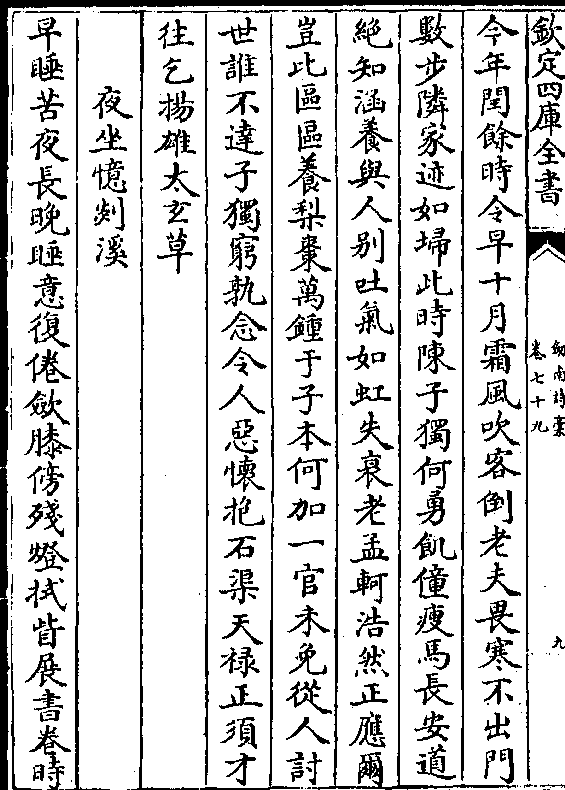 欽定四庫全書
劒南詩稾
卷七十九
九
今年閏餘時令早十月霜風吹客倒老夫畏寒不出門
數步隣家迹如埽此時陳子獨何勇飢僮瘦馬長安道
絶知涵養與人别吐氣如虹失哀老孟軻浩然正應爾
豈比區區養梨棗萬鍾于子本何加一官未免從人討
世誰不達子獨窮孰念令人惡懷抱石渠天禄正須才
往乞揚雄太玄草
夜坐憶剡溪
早睡苦夜長晚睡意復倦歛膝傍殘燈拭眥展書卷時